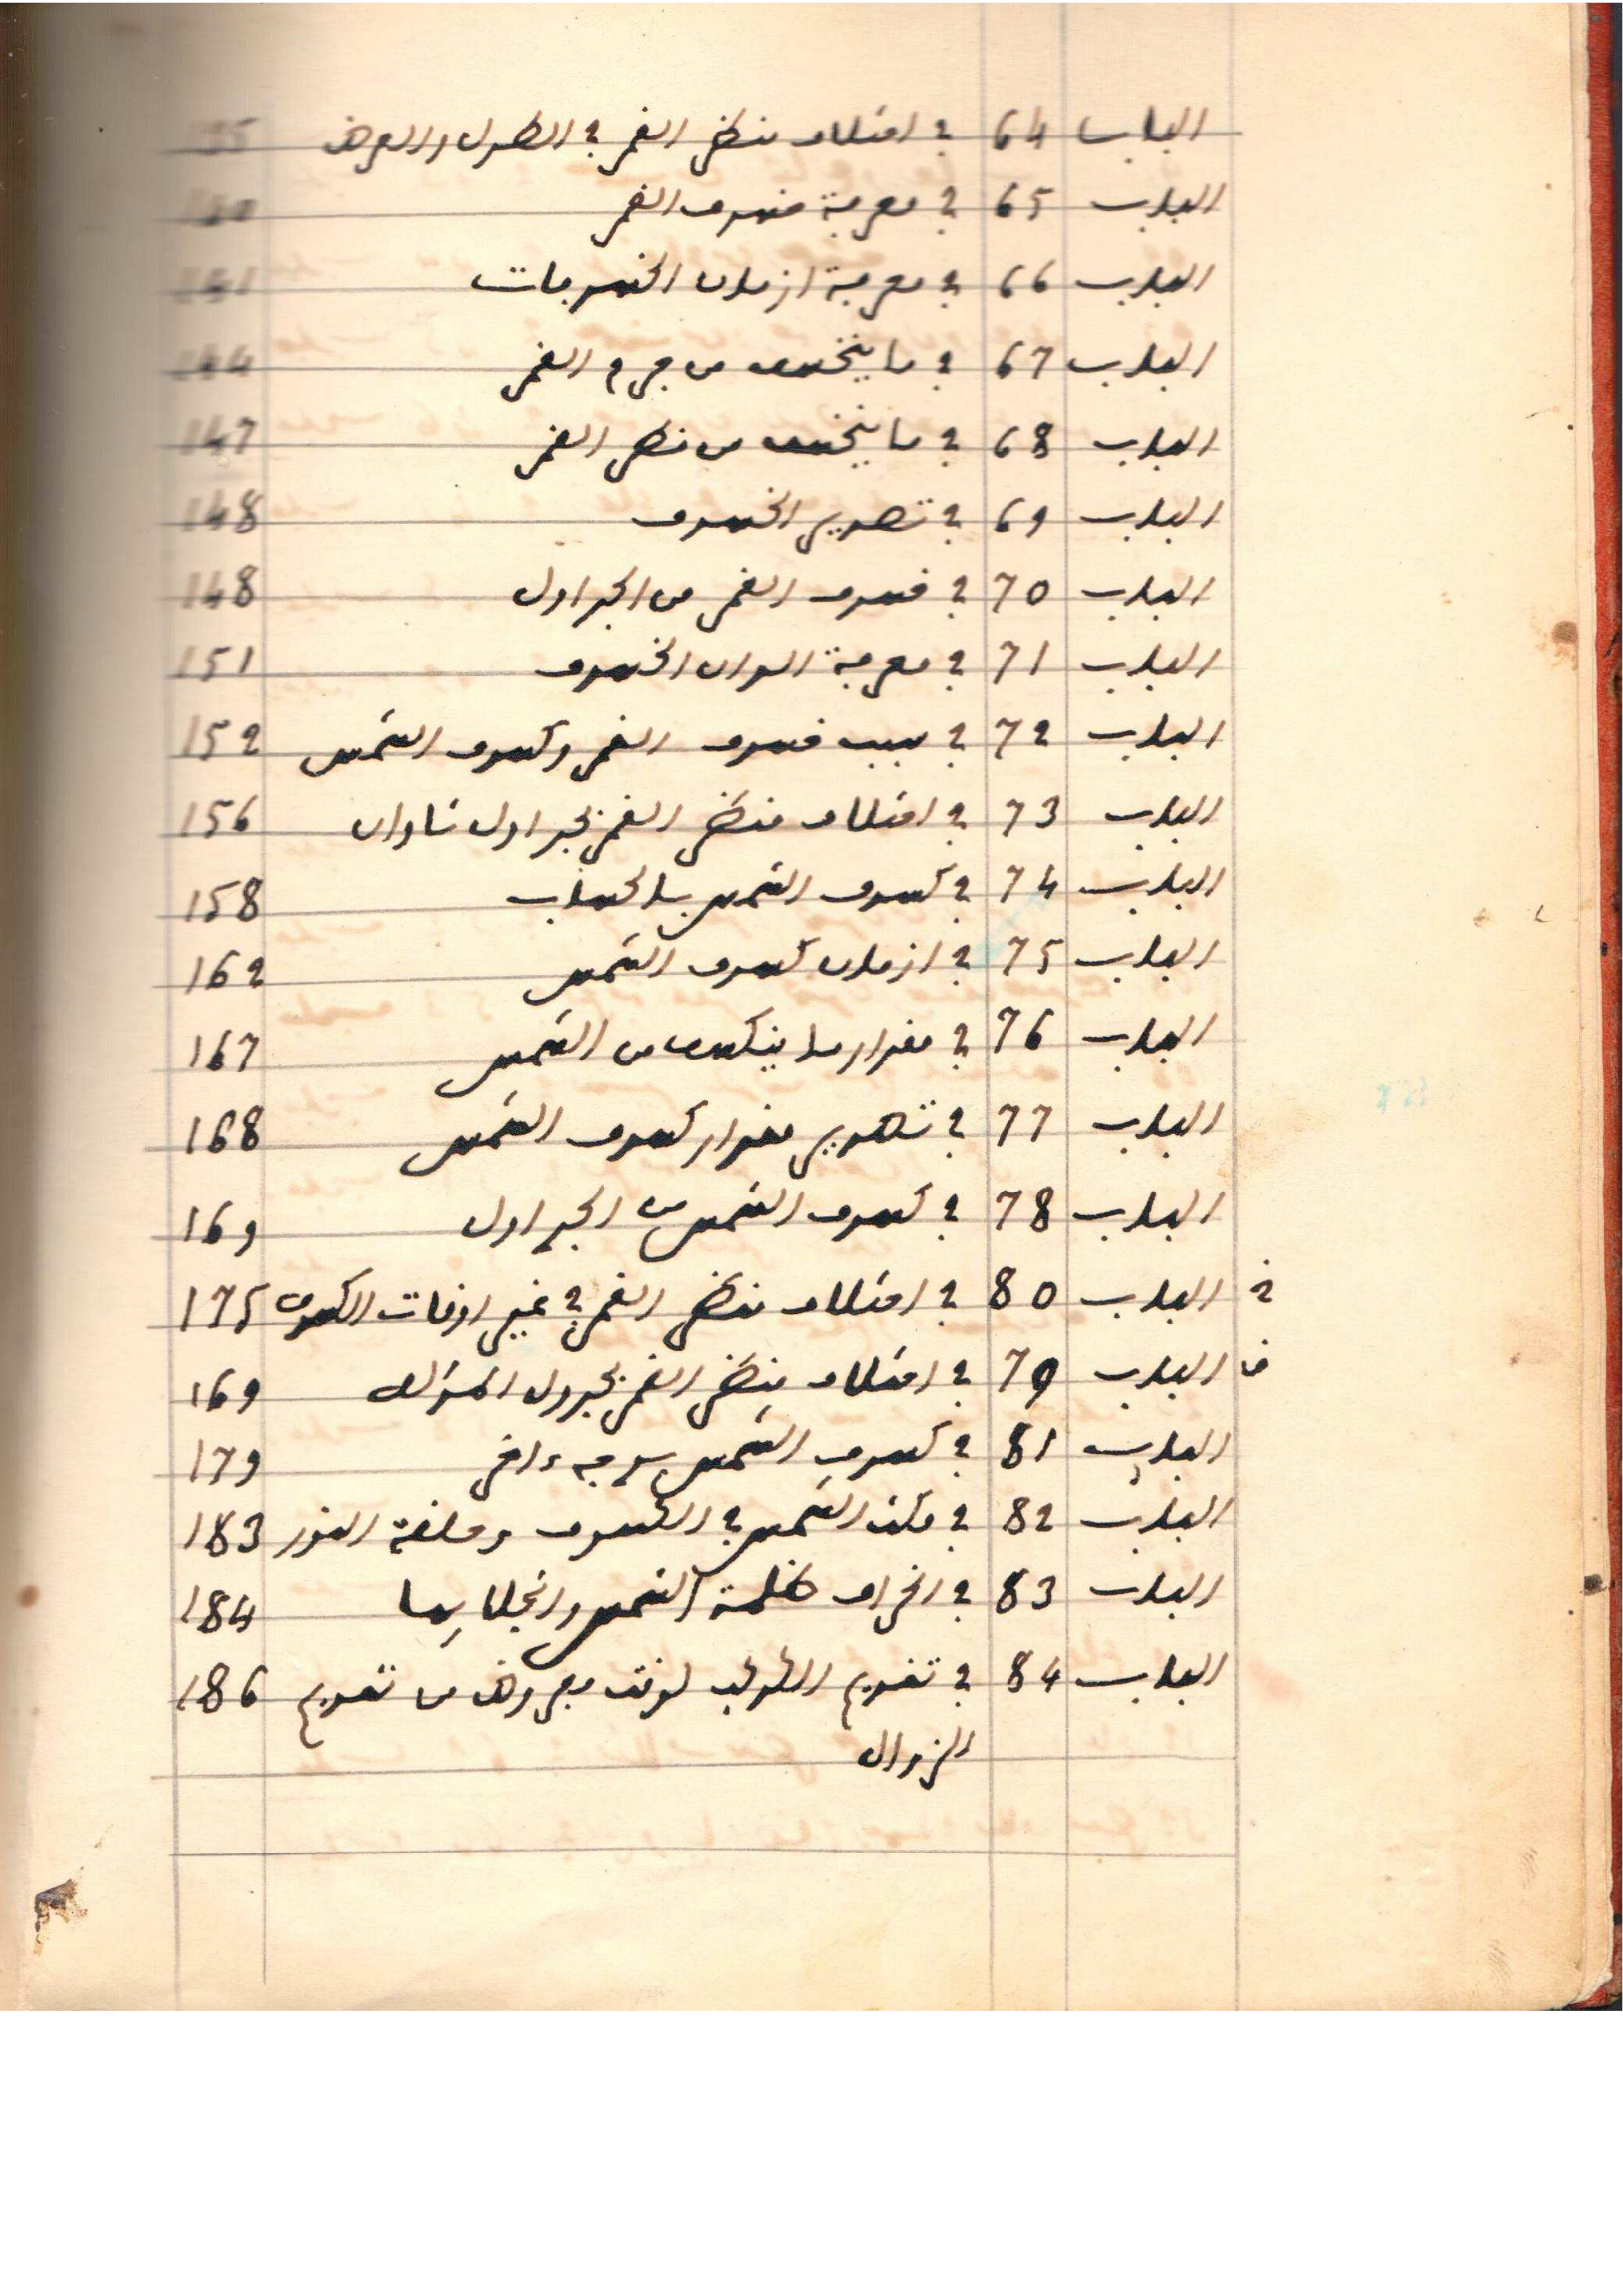 الباب 64 في اختلاف منظر القمر في الطول والعرض
الباب 65 في معرفة خسوف القمر
الباب 66 في معرفة ازمان الخسوفات 141
الباب 67 في ما ينخسف من جرم القمر 144
الباب 68 في ما ينخسف من منظر القمر 147
الباب 69 في تصوير الخسوف 148
الباب 70 في خسوف القمر من الجداول 148
الباب 71 في معرفة الوان الخسوف 151
الباب 72 في سبب خسوف القمر وكسوف الشمس 152
الباب 73 في اختلاف منظر القمر بجداول تاوان 156
الباب 74 في كسوف الشمس بالحساب 158
الباب 75 في ازمان كسوف الشمس 162
الباب 76 في مقدار ما ينكسف من الشمس 167
الباب 77 في تصوير مقدار كسوف الشمس 168
الباب 78 في كسوف الشمس من الجداول 169
خ الباب 80 في اختلاف منظر القمر في غير اوقات الكسوف 175
ق الباب 79 في اختلاف منظر القمر بجدول 169
الباب 81 في كسوف الشمس بوجه ءاخر 179
الباب 82 في مكث الشمس في الكسوف وحلقة النور 183
الباب 83 في انحراف ظلمة الشمس وانجلايها 184
الباب 84 في تقويم الكوكب لوقت مفروض من تقويم 186
الزوال